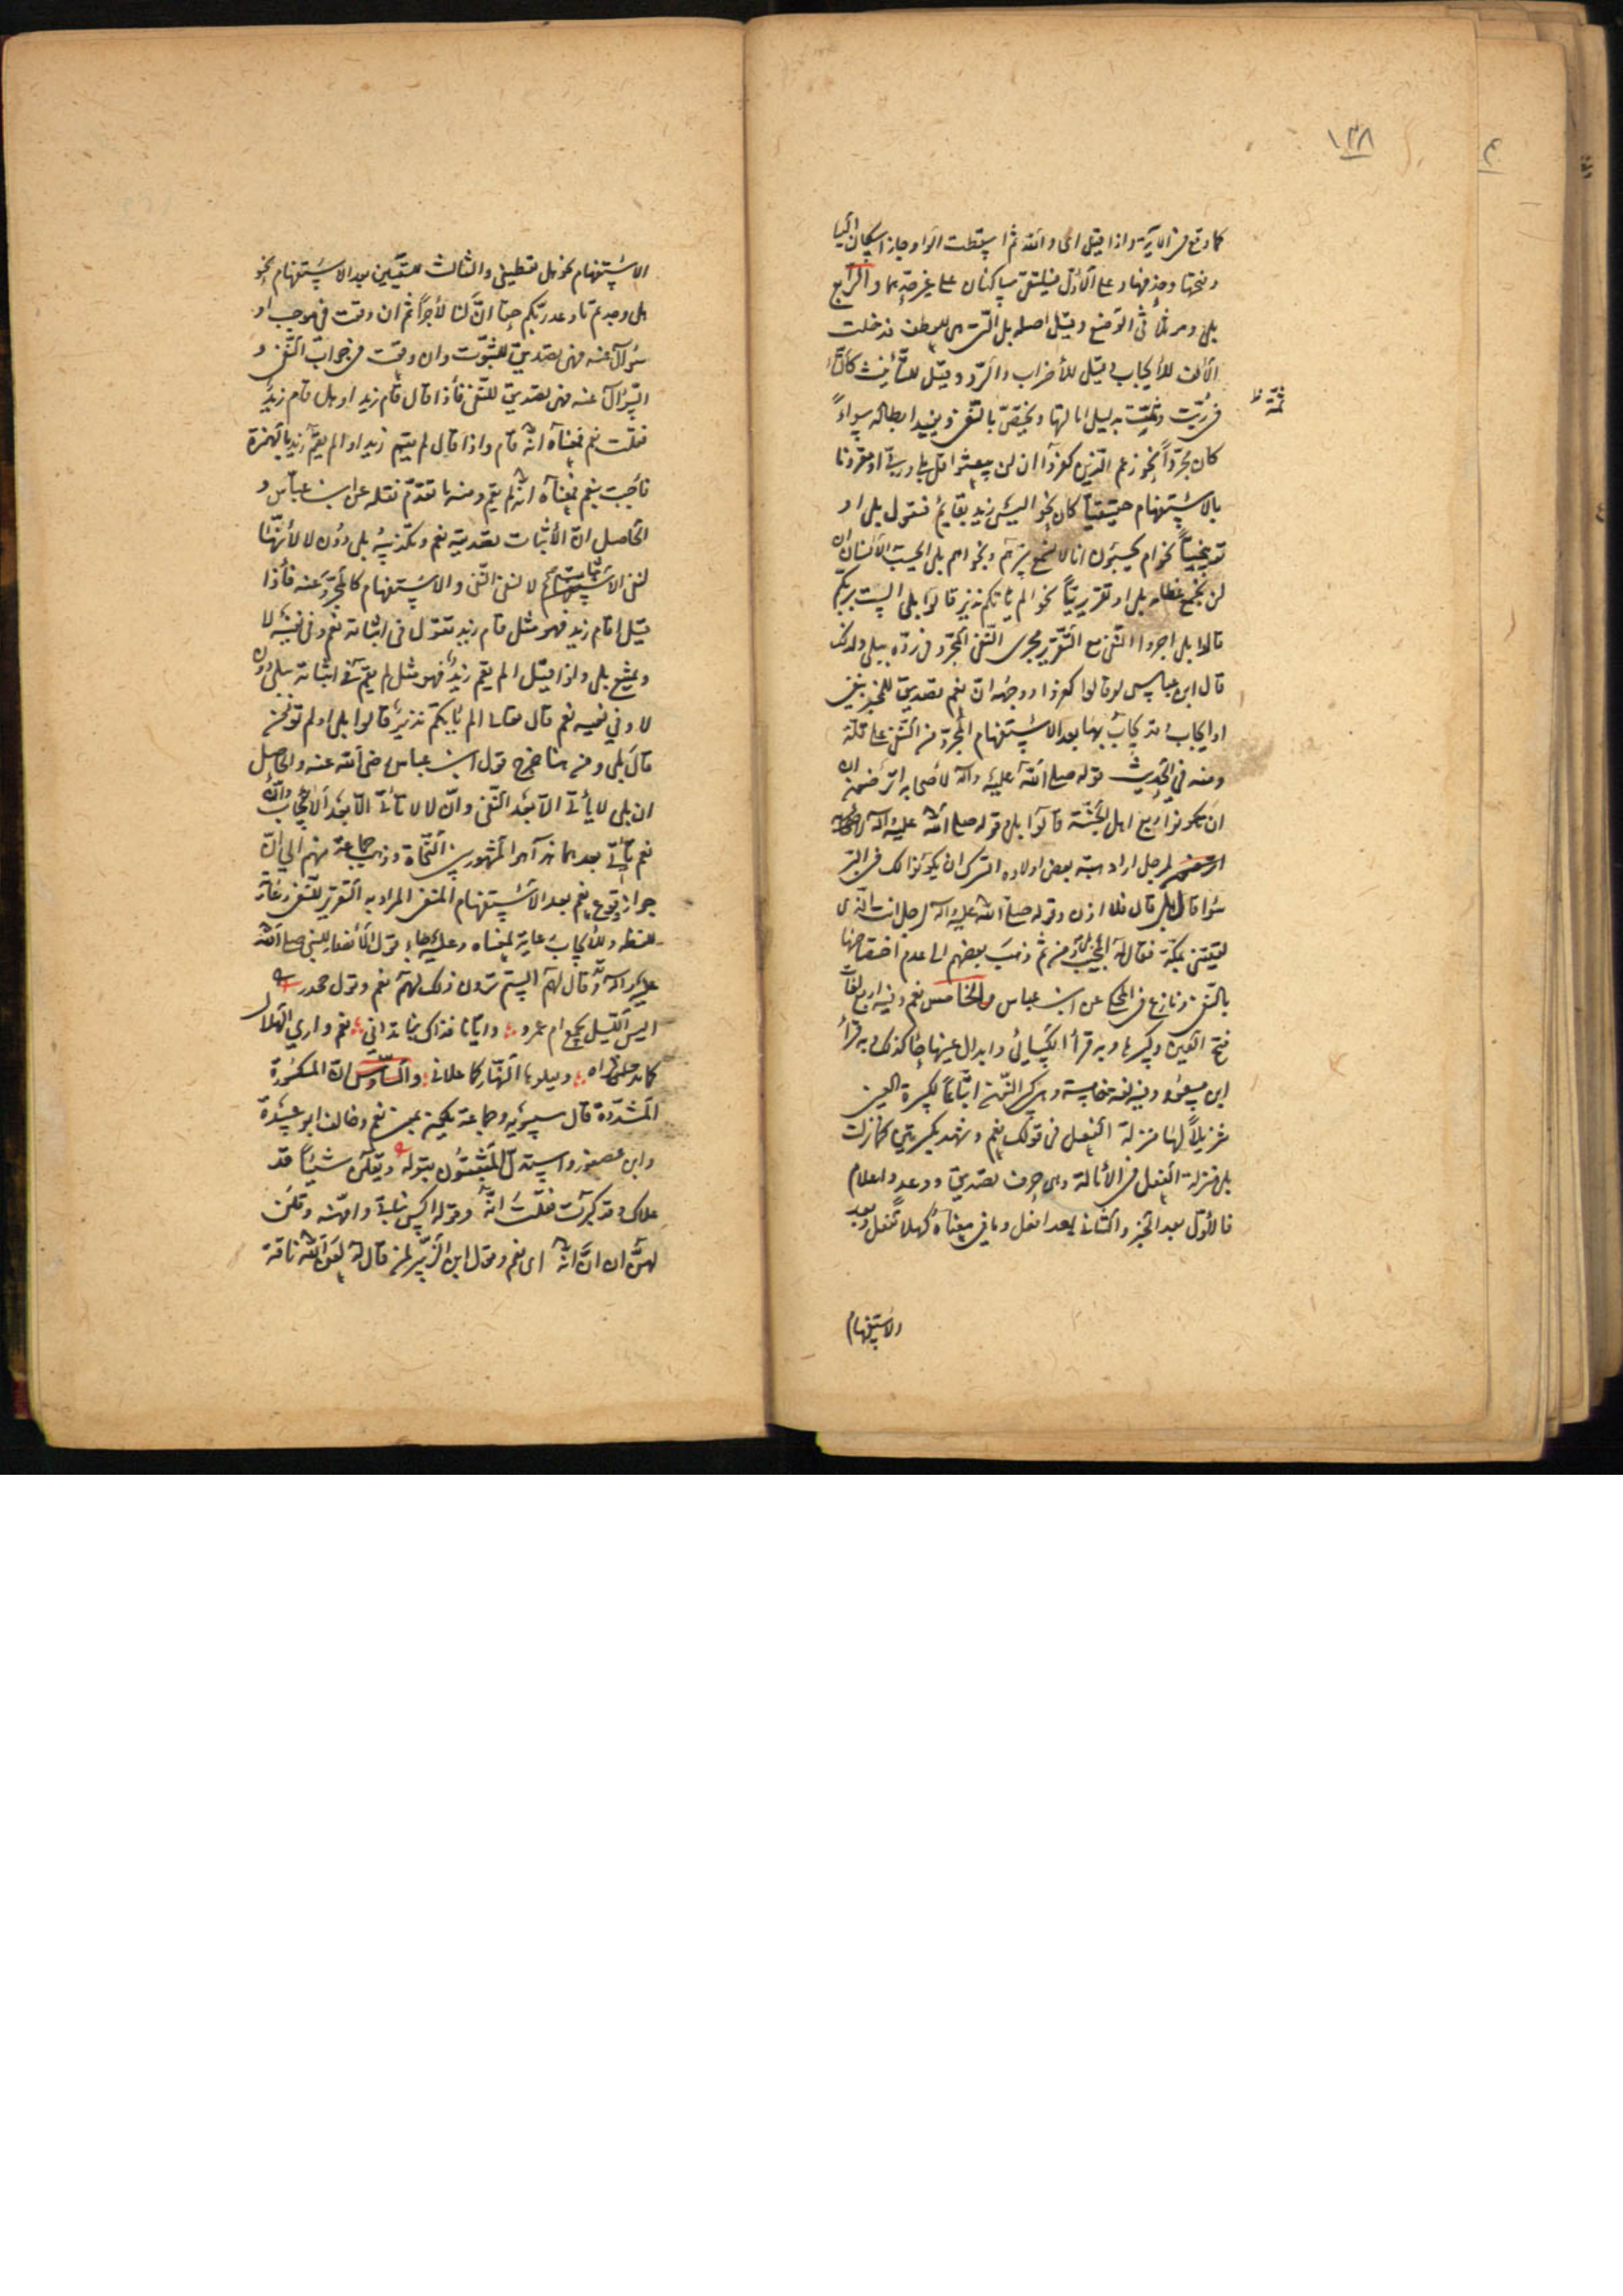 ١٣٨
كما وقع في الآية واذا قيل اى والله ثم اسقطت الواو جاز اسكان اليا
وفتحها وحذفها وعلى الأول فيلتقى ساكنان على غير حدهما والرابع
بلى وهو ثلاثى الوضع وقيل اصله بل التى هى للعطف فدخلت
الألف للأيجاب وقيل للأضراب والرد وقيل للتأنيث كالتاء
فى ربت وثمت بدليل امالتها ويختص بالنفى ويفيد ابطاله سواءً
ثمة ظ
كان مجرداً نحو زعم الذين كفروا ان لن يبعثوا قل بلى وربى او مقرونا
بالاستفهام حقيقياً كان نحو اليس زيد بقايم فنقول بلى او
توبيخياً نحو ام يحسبون انا لا نسمع سرهم ونجواهم بلى ايحسب الانسان ان
لن نجمع عظامه بلى او تقريرياً نحو الم يأتكم نذير قالوا بلى الست بربكم
قالوا بلى اجروا النفى مع التقرير مجرى النفى المجرد فى رده ببلى ولذلك
قال ابن عباس لو قالوا كفروا ووجهه ان نعم تصديق للمخبر بنفى
او ايجاب وقد يجاب بها بعد الاستفهام المجرد من النفى على قلة
ومنه فى الحديث قوله صلى الله عليه وآله لأصحابه اترضون ان
ان تكونوا ربع اهل الجنة قالوا بلى وقوله صلى الله عليه وآله
لرجل اراد هبة بعض اولاده اتسرك ان يكونوا لك فى البر
سوا قال بلى قال فلا اذن وقوله صلى الله عليه وآله لرجل انت الذى
لقيتنى بمكة فقال له المجيب بلى ومن ثم ذهب بعضهم الى عدم اختصاصها
بالنفى ونازع فى المحكى عن ابن عباس والخامس نعم وفيه اربع لغات
فتح العين وكسرها وبه قرأ الكسائى وابدال عينها حاء كذلك وبه قرأ
ابن مسعود وفيه لغة خامسة وهى كسر النون اتباعاً لكسرة العين
تنزيلاً لها منزلة الفعل فى قولك نعم وشهد بكسرتين كما نزلت
بلى منزلة الفعل فى الأمالة وهى حرف تصديق ووعد واعلام
فالأول بعد الخبر والثانى بعد افعل وما فى معناه كهلا تفعل وبعد
الاستفهام
الاستفهام نحو هل تعطينى والثالث للتقين بعد الاستفهام نحو
هل وجدتم ما وعد ربكم حقا ان لنا لأجراً ثم ان وقت فى موجب او
سؤال عنه فهى تصديق للثبوت وان وقعت فى جواب النفى و
السؤال عنه فهى تصديق للنفى فأذا قال قام زيد او هل قام زيد
فقلت نعم فمعناه انه قام واذا قال لم يقم زيد او الم يقم زيد بالهمزة
فأجبت بنعم فمعناه انه لم يقم ومنه ما تقدم نقله عن ابن عباس و
الحاصل ان الأثبات تصديقه نعم وتكذيبه بلى دون لا لأنها
لنفى الاثبات لا لنفى النفى والاستفهام كالمجرد عنه فأذا
قيل اقام زيد فهو مثل قام زيد تقول فى اثباته نعم وفى نفيه لا
ويمتنع بلى واذا قيل الم يقم زيد فهو مثل لم يقم فى اثباته ببلى دون
لا وفى نفيه نعم قال تعالى الم يأتكم نذير قالوا بلى اولم تؤمن
قال بلى ومن هنا خرج قول ابن عباس رضى الله عنه والحاصل
ان بلى لا يأتى الا بعد النفى وان لا لا تأتى الا بعد الأيجاب وان
نعم يأتى بعدهما هذا هو المشهور بين النحاة وذهب جماعة منهم الى ان
جواز وقوع نعم بعد الأستفهام المنفى المراد به التقرير للنفى رعاية
للفظه وللأيجاب رعاية لمعناه وعليه جاء قول الأنصار للنبى صلى الله
عليه وآله وقد قال لهم الستم ترون ذلك لهم نعم وقول جحدر
اليس الليل يجمع ام عمرو وايانا فذاك بنا تدانى نعم وارى الهلال
كما تراه ويعلوها النهار كما علانى والسادس ان المكسورة
المشددة قال سيبويه وجماعة يكون بمعنى نعم وخالف ابو عبيدة
وابن عصفور واستدل المثبتون بقوله ويقلن شيئاً قد
علاك وقد كبرت فقلت انه وقوله
لهن ان ان انه اى نعم وقول ابن الزبير لمن قال له لعن الله ناقة